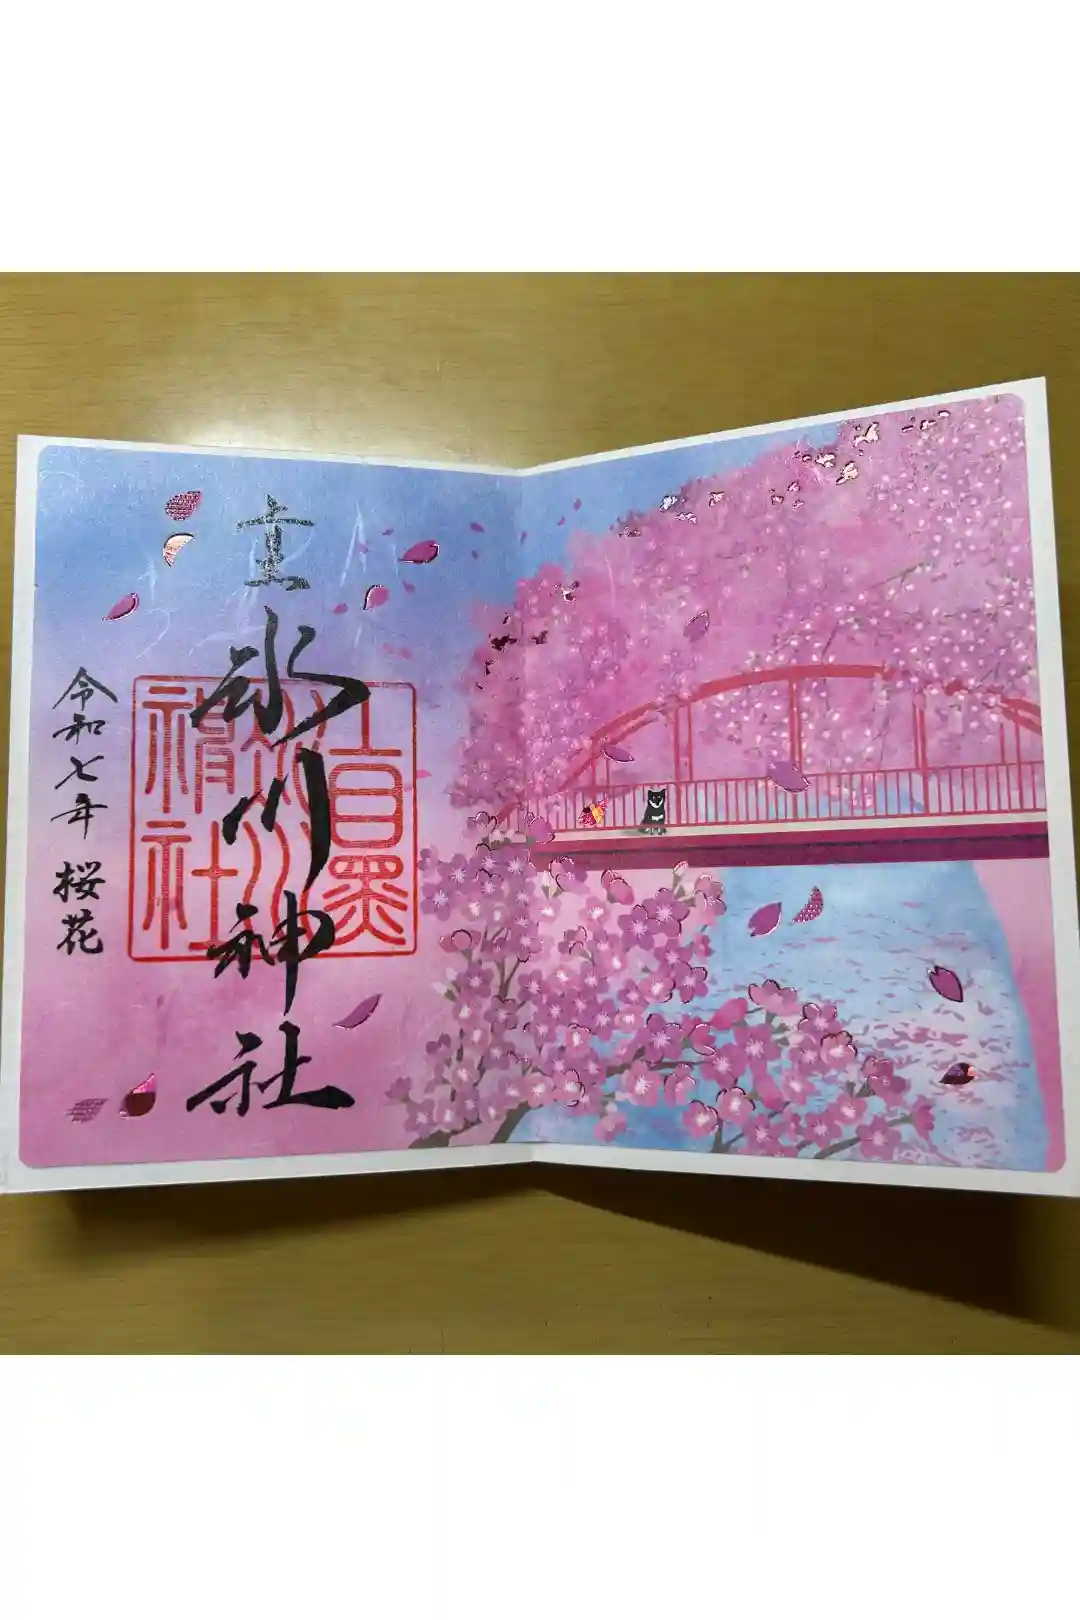 氷川神社
上目黒
氷川
神社
令和七年 桜花